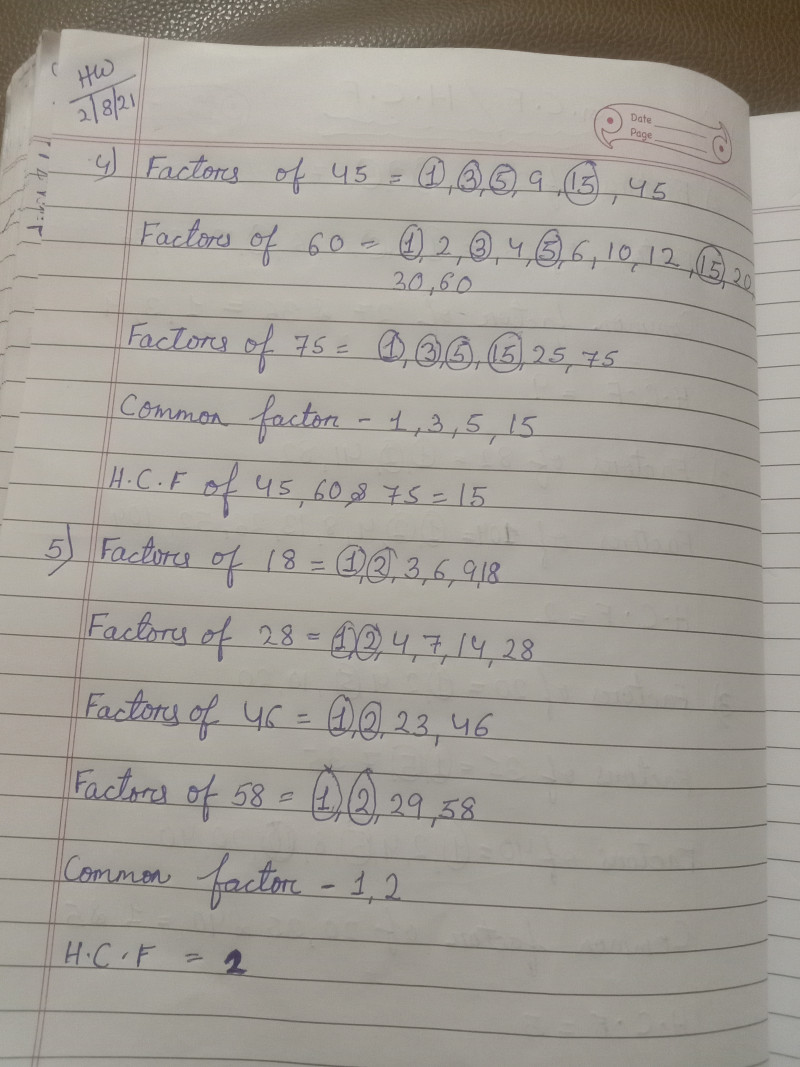 HW
2/8/21
Date
Page
4) Factors of 45 = 1, 3, 5, 9, 15, 45
Factors of 60 = 1, 2, 3, 4, 5, 6, 10, 12, 15, 20
30, 60
Factors of 75 = 1, 3, 5, 15, 25, 75
Common factor - 1, 3, 5, 15
H.C.F of 45, 60 & 75 = 15
5) Factors of 18 = 1, 2, 3, 6, 9, 18
Factors of 28 = 1, 2, 4, 7, 14, 28
Factors of 46 = 1, 2, 23, 46
Factors of 58 = 1, 2, 29, 58
Common factor - 1, 2
H.C.F = 2